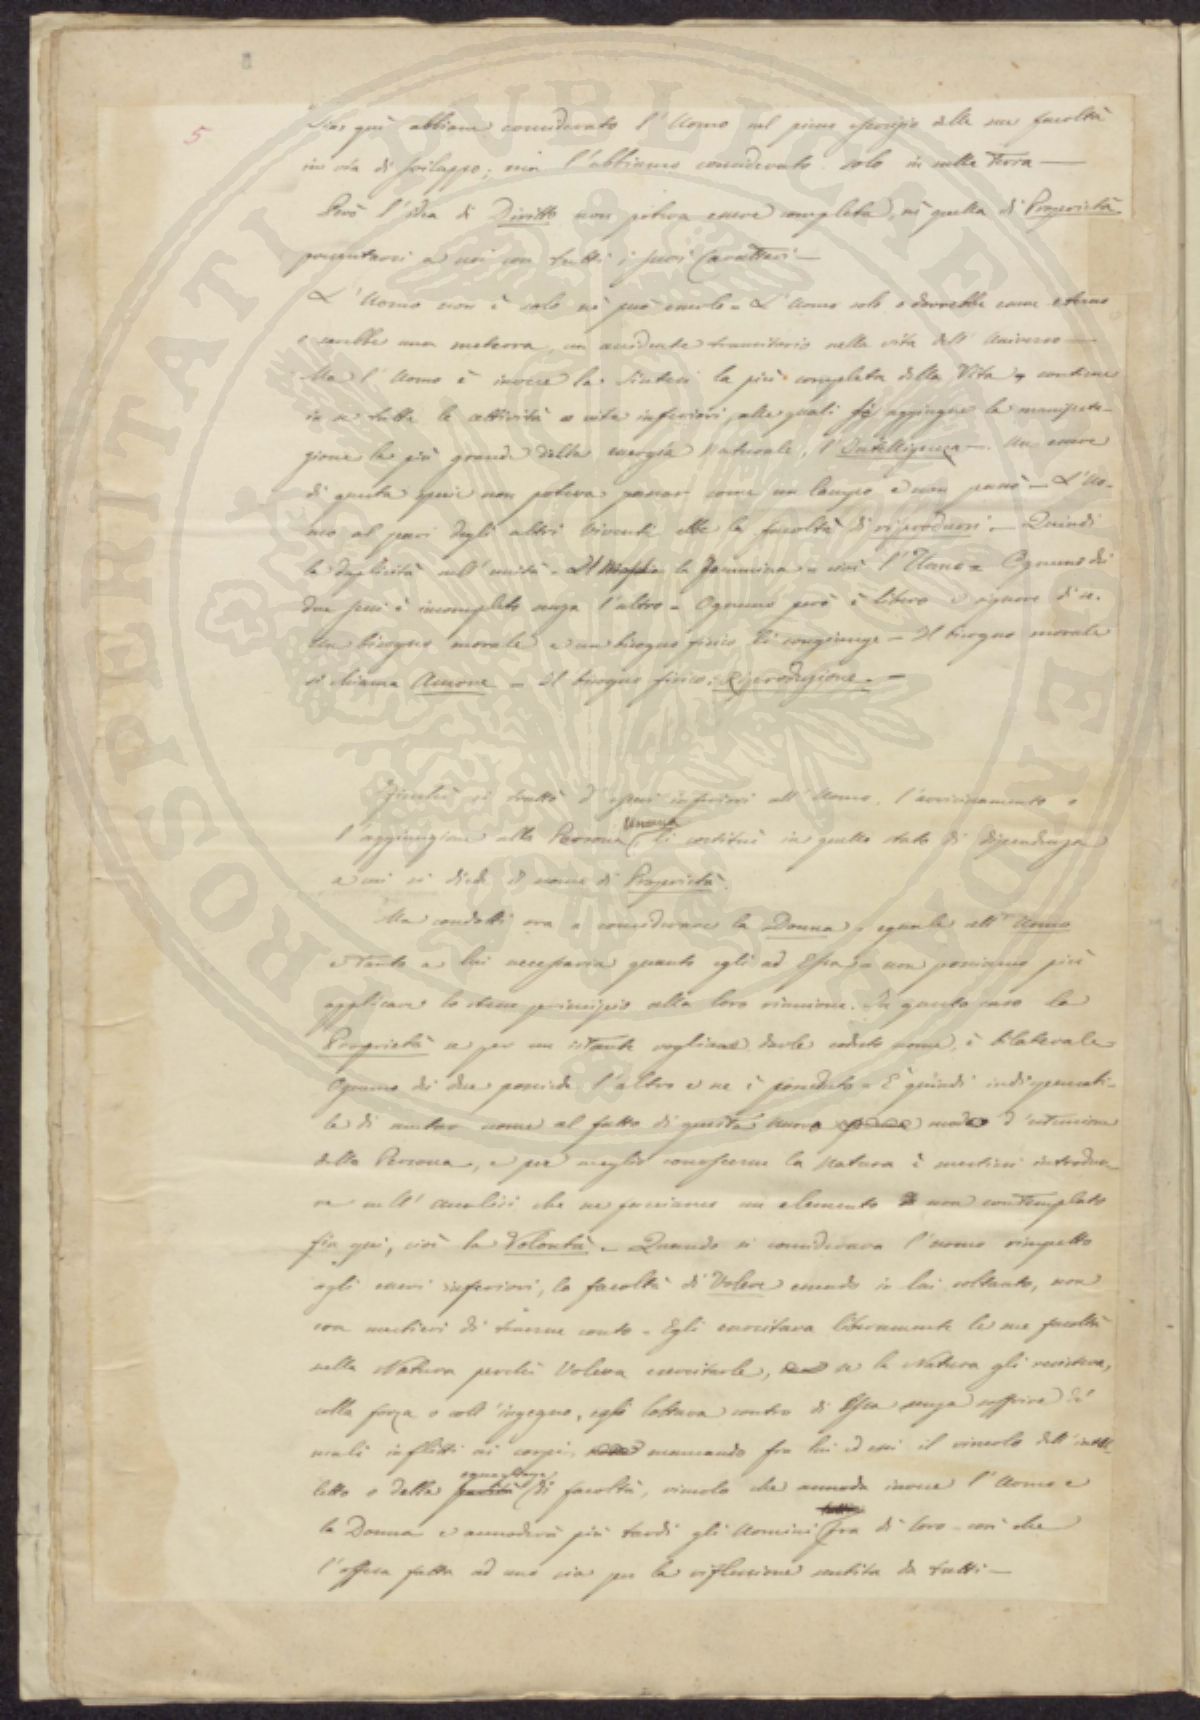 5
Fin quì abbiamo considerato l'Uomo nel pieno esercizio delle sue facoltà
in via di sviluppo; ma l'abbiamo considerato solo in sulla Terra —
Però l'idea di Diritto non poteva essere completa, nè quella di Proprietà
presentarsi a noi con tutti i suoi Caratteri —
L'Uomo non è solo nè può esserlo - L'Uomo solo o dovrebbe essere eterno
o sarebbe una meteora, un accidente transitorio nella vita dell'Universo —
Ma l'Uomo è invece la Sintesi la più completa della Vita, contiene
in se tutte le attività o vite inferiori, alle quali aggiugne la manifesta-
zione la più grande della energia Naturale, l'Intelligenza —. Un essere
di questa specie non poteva passar come un lampo e non passò — L'Uo-
mo al pari degli altri Viventi ebbe la facoltà di riprodursi. — Quindi
la duplicità nell'unità - Il Maschio la Femmina - cioè l'Uomo - Ognuno dei
due sessi è incompleto senza l'altro - Ognuno però è libero e signore di se.
Un bisogno morale e un bisogno fisico li congiunge — Il bisogno morale
si chiama Amore — il bisogno fisico: Riproduzione. —
Finchè si trattò d'esseri inferiori all'Uomo, l'avvicinamento e
umana
l'aggiunzione alla Persona li costituì in quello stato di dipendenza
a cui si diede il nome di Proprietà.
Ma condotti ora a considerare la Donna, eguale all'Uomo
e tanto a lui necessaria quanto egli ad Essa - non possiamo più
applicare lo stesso principio alla loro riunione. In questo caso la
Proprietà se per un istante vogliamo darle codesto nome, è bilaterale
Ognuno dei due possiede l'altro e ne è posseduto - È quindi indispensabi-
le di mutar nome al fatto di questo nuovo modo d'estensione
della Persona, e per meglio conoscerne la Natura è mestieri introdur-
re nell'analisi che ne facciamo un elemento non contemplato
fin quì, cioè la Volontà - Quando si considerava l'uomo rimpetto
agli esseri inferiori, la facoltà di Volere essendo in lui soltanto, non
era mestieri di tenerne conto - Egli esercitava liberamente le sue facoltà
nella Natura perchè Voleva esercitarle, se la Natura gli resisteva,
colla forza o coll'ingegno, egli lottava contro di Essa senza soffrire de'
mali inflitti ai corpi, mancando fra lui ed essi il vincolo dell'intel-
eguaglianza
letto o della parità di facoltà, vincolo che annoda invece l'Uomo e
la Donna e annoderà più tardi gli Uomini fra di loro - così che
l'offesa fatta ad uno sia per la riflessione sentita da tutti —